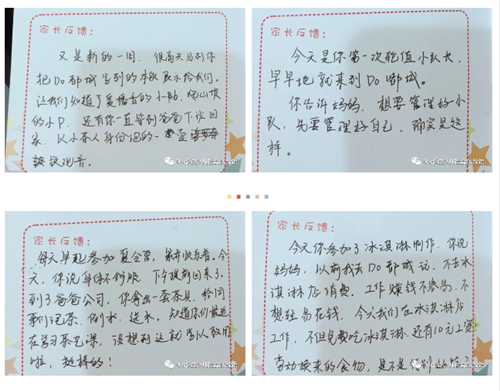 家长反馈：
又是新的一周，很高兴见到你
把Do都城学到的本领展示给我们。
让我们知道了爱播音的小
的小P，还有你一直等到爸爸下班回
家，以小茶人身份泡的一壶
铁观音。
家长反馈：
今天是你第一次轮值小队长，
早早地就来到Do都城。
你告诉妈妈，想要管理好小
队，先要管理好自己，确实是这
样。
家长反馈：
每天早起参加夏令营，累并快乐着，今
天，你说身体不舒服，下午提前回来了，
到了爸爸公司，你拿出一套茶具，给同
事们泡茶、倒水、送水。知道你们最近
在学习茶艺课，没想到这就学以致用
啦，挺棒的！
家长反馈：
今天你参加了冰淇淋制作，你说
妈妈，以前我去Do都城说，不去冰
淇淋店消费，工作赚钱不容易，不
想轻易花钱，今天我们在冰淇淋店
工作，不但免费吃冰淇淋，还有10元工资
劳动换来的食物，是不是特别